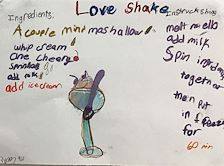 Love shake
Ingredients:
A couple mini mashallow
whip cream
One cheery
sprinkles
add ice cream
Instruckshons
melt mello
add milk
Spin
together
then put
in a freezer
for
60 min